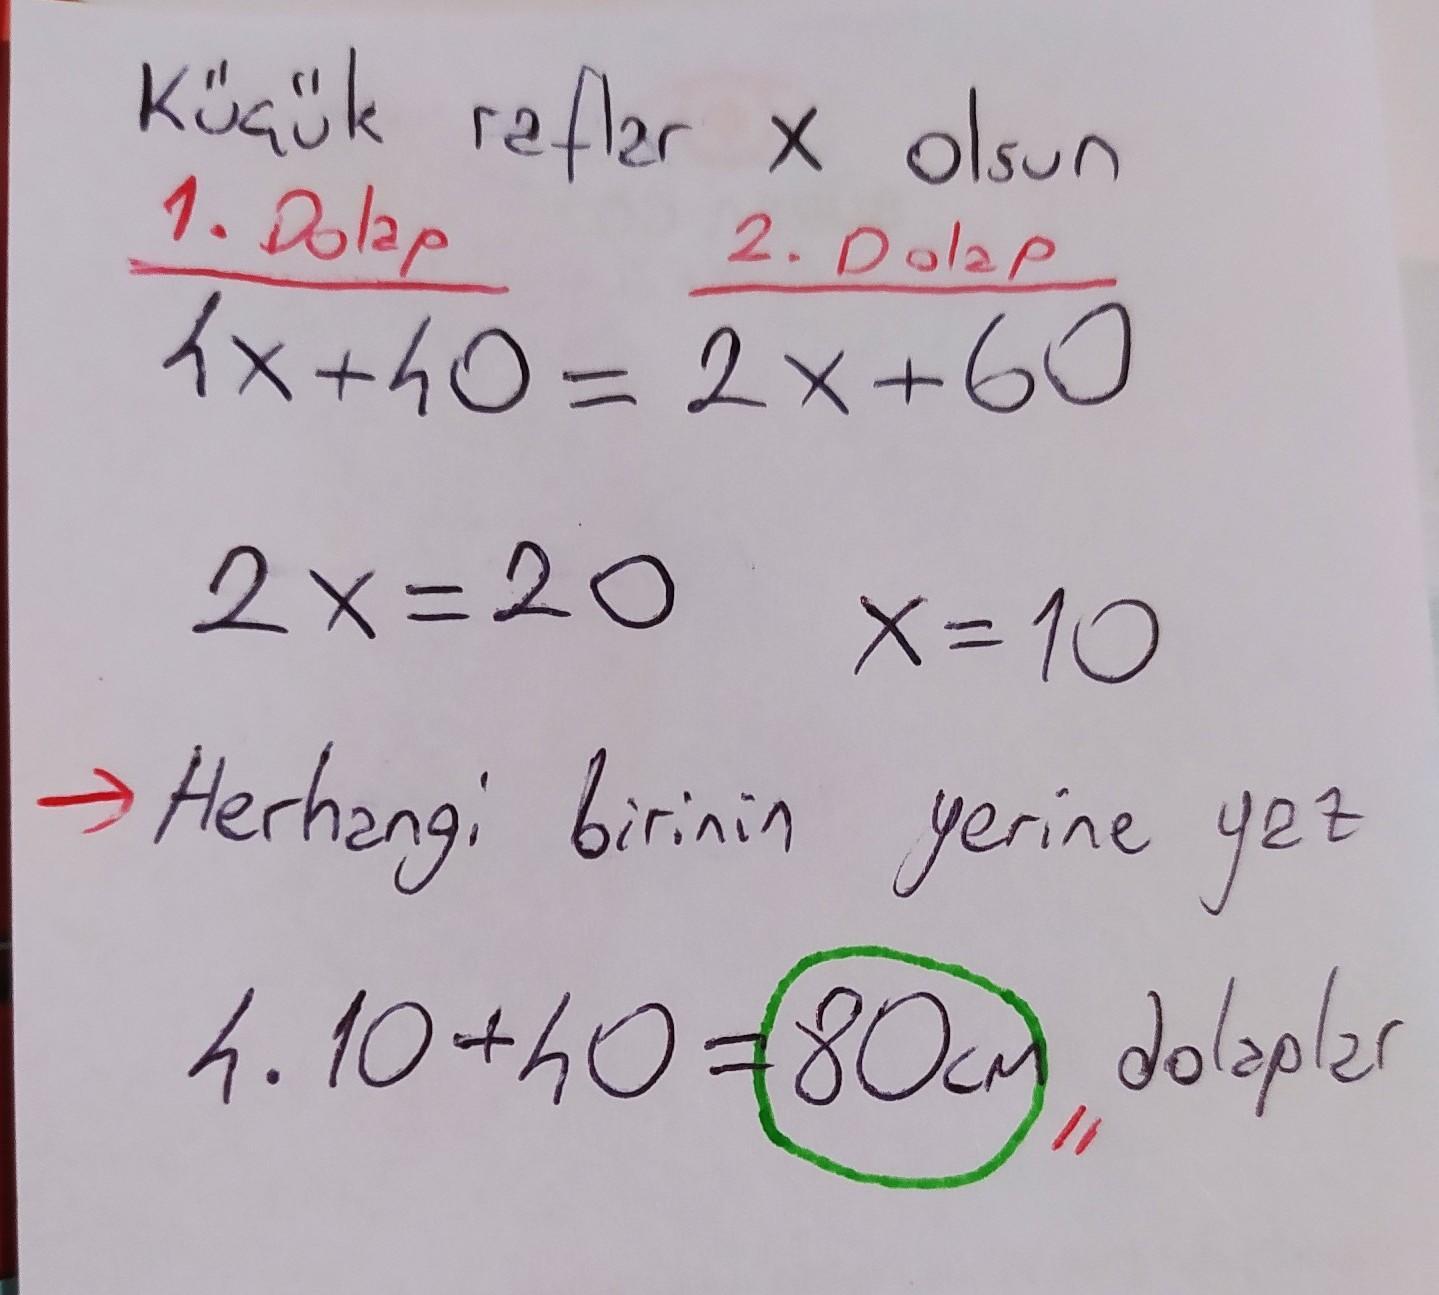 Küçük raflar x olsun
1. Dolap 2. Dolap
4x+40=2x+60
2x=20 x=10
→ Herhangi birinin yerine yaz
4.10+40=80cm,, dolaplar